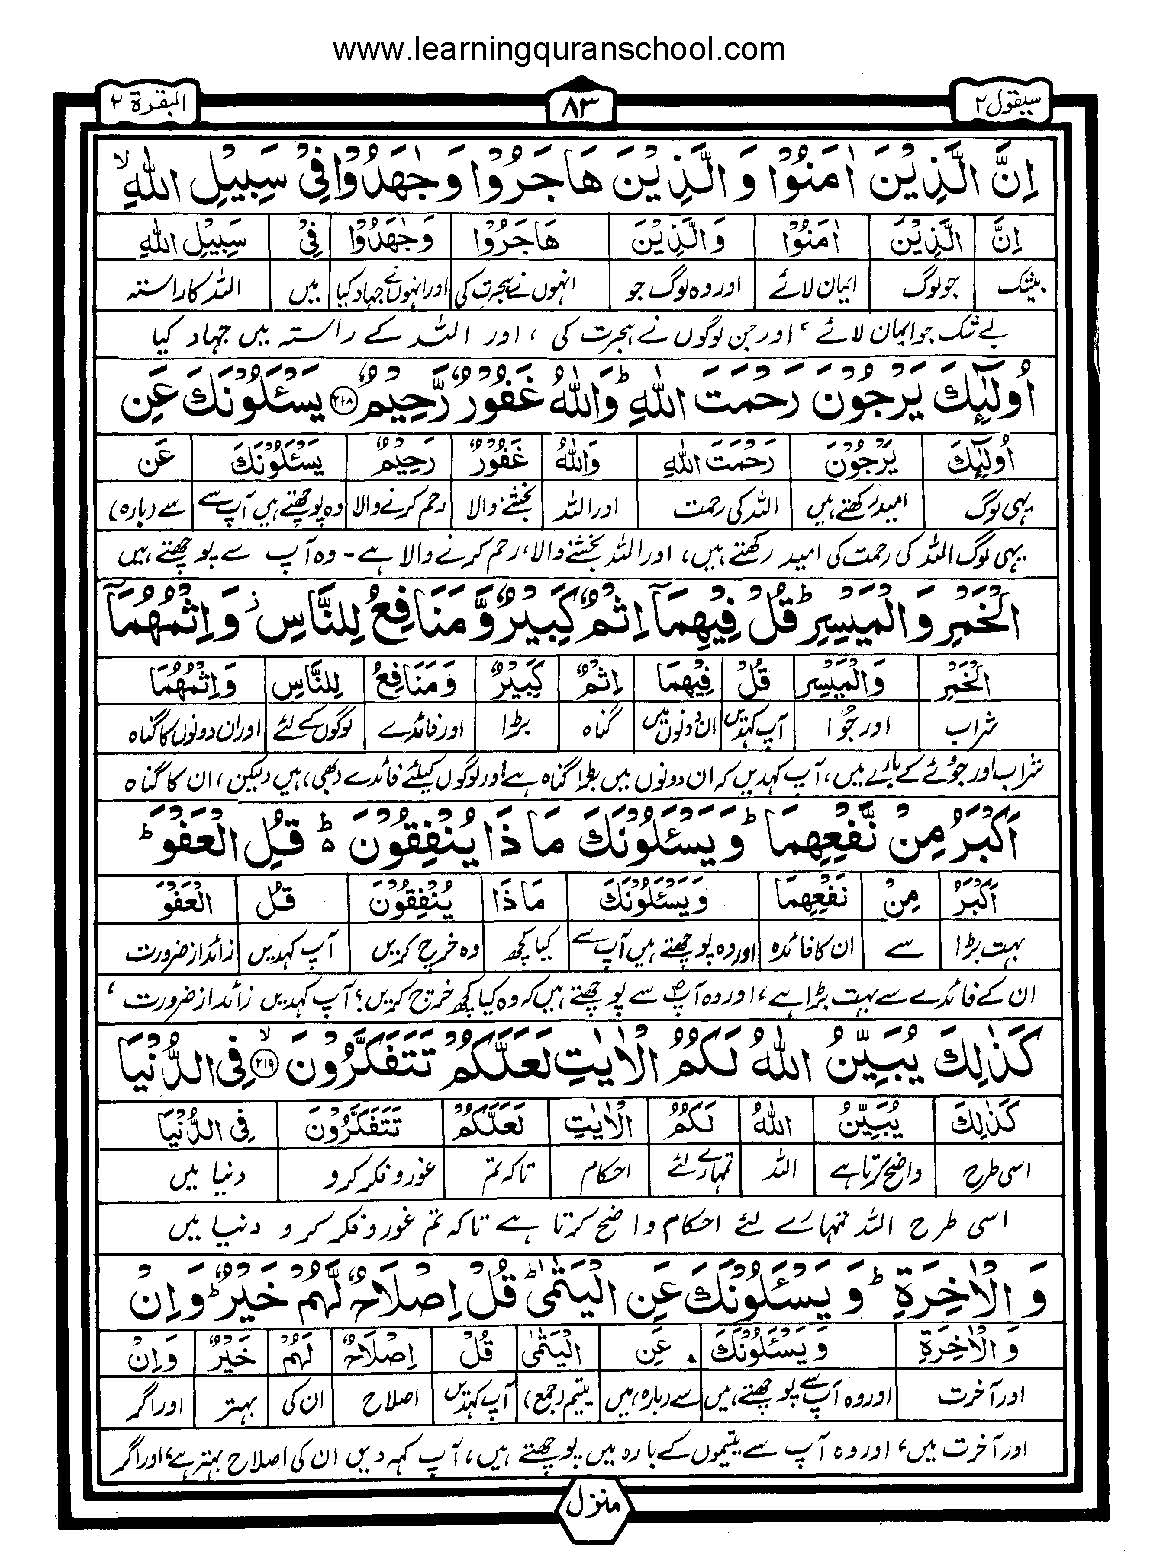 www.learningquranschool.com
سیقول ۲ ۸۳ البقرة ۲
اِنَّ الَّذِيْنَ اٰمَنُوْا وَ الَّذِيْنَ هَاجَرُوْا وَ جٰهَدُوْا فِيْ سَبِيْلِ اللّٰهِ ۙ
اِنَّ الَّذِيْنَ اٰمَنُوْا وَالَّذِيْنَ هَاجَرُوْا وَجٰهَدُوْا فِيْ سَبِيْلِ اللّٰهِ
بیشک جو لوگ ایمان لائے اور وہ لوگ جو انہوں نے ہجرت کی اور انہوں نے جہاد کیا میں اللہ کا راستہ
بے شک جو ایمان لائے ، اور جن لوگوں نے ہجرت کی ، اور اللہ کے راستہ میں جہاد کیا
اُولٰٓئِكَ يَرْجُوْنَ رَحْمَتَ اللّٰهِ ؕ وَاللّٰهُ غَفُوْرٌ رَّحِيْمٌ ۲۱۸ يَسْـَٔلُوْنَكَ عَنِ
اُولٰٓئِكَ يَرْجُوْنَ رَحْمَتَ اللّٰهِ وَاللّٰهُ غَفُوْرٌ رَحِيْمٌ يَسْئَلُوْنَكَ عَنِ
یہی لوگ امید رکھتے ہیں اللہ کی رحمت اور اللہ بخشنے والا رحم کرنے والا وہ پوچھتے ہیں آپ سے سے (بارہ)
یہی لوگ اللہ کی رحمت کی امید رکھتے ہیں، اور اللہ بخشنے والا، رحم کرنے والا ہے - وہ آپ سے پوچھتے ہیں
الْخَمْرِ وَالْمَيْسِرِ ؕ قُلْ فِيْهِمَآ اِثْمٌ كَبِيْرٌ وَّ مَنَافِعُ لِلنَّاسِ ز وَاِثْمُهُمَآ
الْخَمْرِ وَالْمَيْسِرِ قُلْ فِيْهِمَا اِثْمٌ كَبِيْرٌ وَمَنَافِعُ لِلنَّاسِ وَاِثْمُهُمَا
شراب اور جُوا آپ کہدیں ان دونوں میں گناہ بڑا اور فائدے لوگوں کے لئے اور ان دونوں کا گناہ
شراب اور جوئے کے بارے میں، آپ کہدیں کہ ان دونوں میں بڑا گناہ ہے اور لوگوں کیلئے فائدے (بھی) ہیں (لیکن) ان کا گناہ
اَكْبَرُ مِنْ نَّفْعِهِمَا ؕ وَيَسْـَٔلُوْنَكَ مَاذَا يُنْفِقُوْنَ ۬ؕ قُلِ الْعَفْوَ ؕ
اَكْبَرُ مِنْ نَفْعِهِمَا وَيَسْئَلُوْنَكَ مَاذَا يُنْفِقُوْنَ قُلِ الْعَفْوَ
بہت بڑا سے ان کا فائدہ اور وہ پوچھتے ہیں آپ سے کیا کچھ وہ خرچ کریں آپ کہدیں زائد از ضرورت
ان کے فائدے سے بہت بڑا ہے، اور وہ آپ سے پوچھتے ہیں کہ وہ کیا کچھ خرچ کریں؟ آپ کہدیں زائد از ضرورت ،
كَذٰلِكَ يُبَيِّنُ اللّٰهُ لَكُمُ الْاٰيٰتِ لَعَلَّكُمْ تَتَفَكَّرُوْنَ ۙ ۲۱۹ فِي الدُّنْيَا
كَذٰلِكَ يُبَيِّنُ اللّٰهُ لَكُمُ الْاٰيٰتِ لَعَلَّكُمْ تَتَفَكَّرُوْنَ فِي الدُّنْيَا
اسی طرح واضح کرتا ہے اللہ تمہارے لئے احکام تاکہ تم غور و فکر کرو دنیا میں
اسی طرح اللہ تمہارے لئے احکام واضح کرتا ہے تاکہ تم غور و فکر کرو دنیا میں
وَ الْاٰخِرَةِ ؕ وَ يَسْـَٔلُوْنَكَ عَنِ الْيَتٰمٰى ؕ قُلْ اِصْلَاحٌ لَّهُمْ خَيْرٌ ؕ وَاِنْ
وَ الْاٰخِرَةِ وَيَسْئَلُوْنَكَ عَنِ الْيَتٰمٰى قُلْ اِصْلَاحٌ لَهُمْ خَيْرٌ وَاِنْ
اور آخرت اور وہ آپ سے پوچھتے ہیں سے (بارہ) میں یتیم (جمع) آپ کہدیں اصلاح ان کی بہتر اور اگر
اور آخرت میں، اور وہ آپ سے یتیموں کے بارہ میں پوچھتے ہیں، آپ کہہ دیں ان کی اصلاح بہتر ہے، اور اگر
منزل